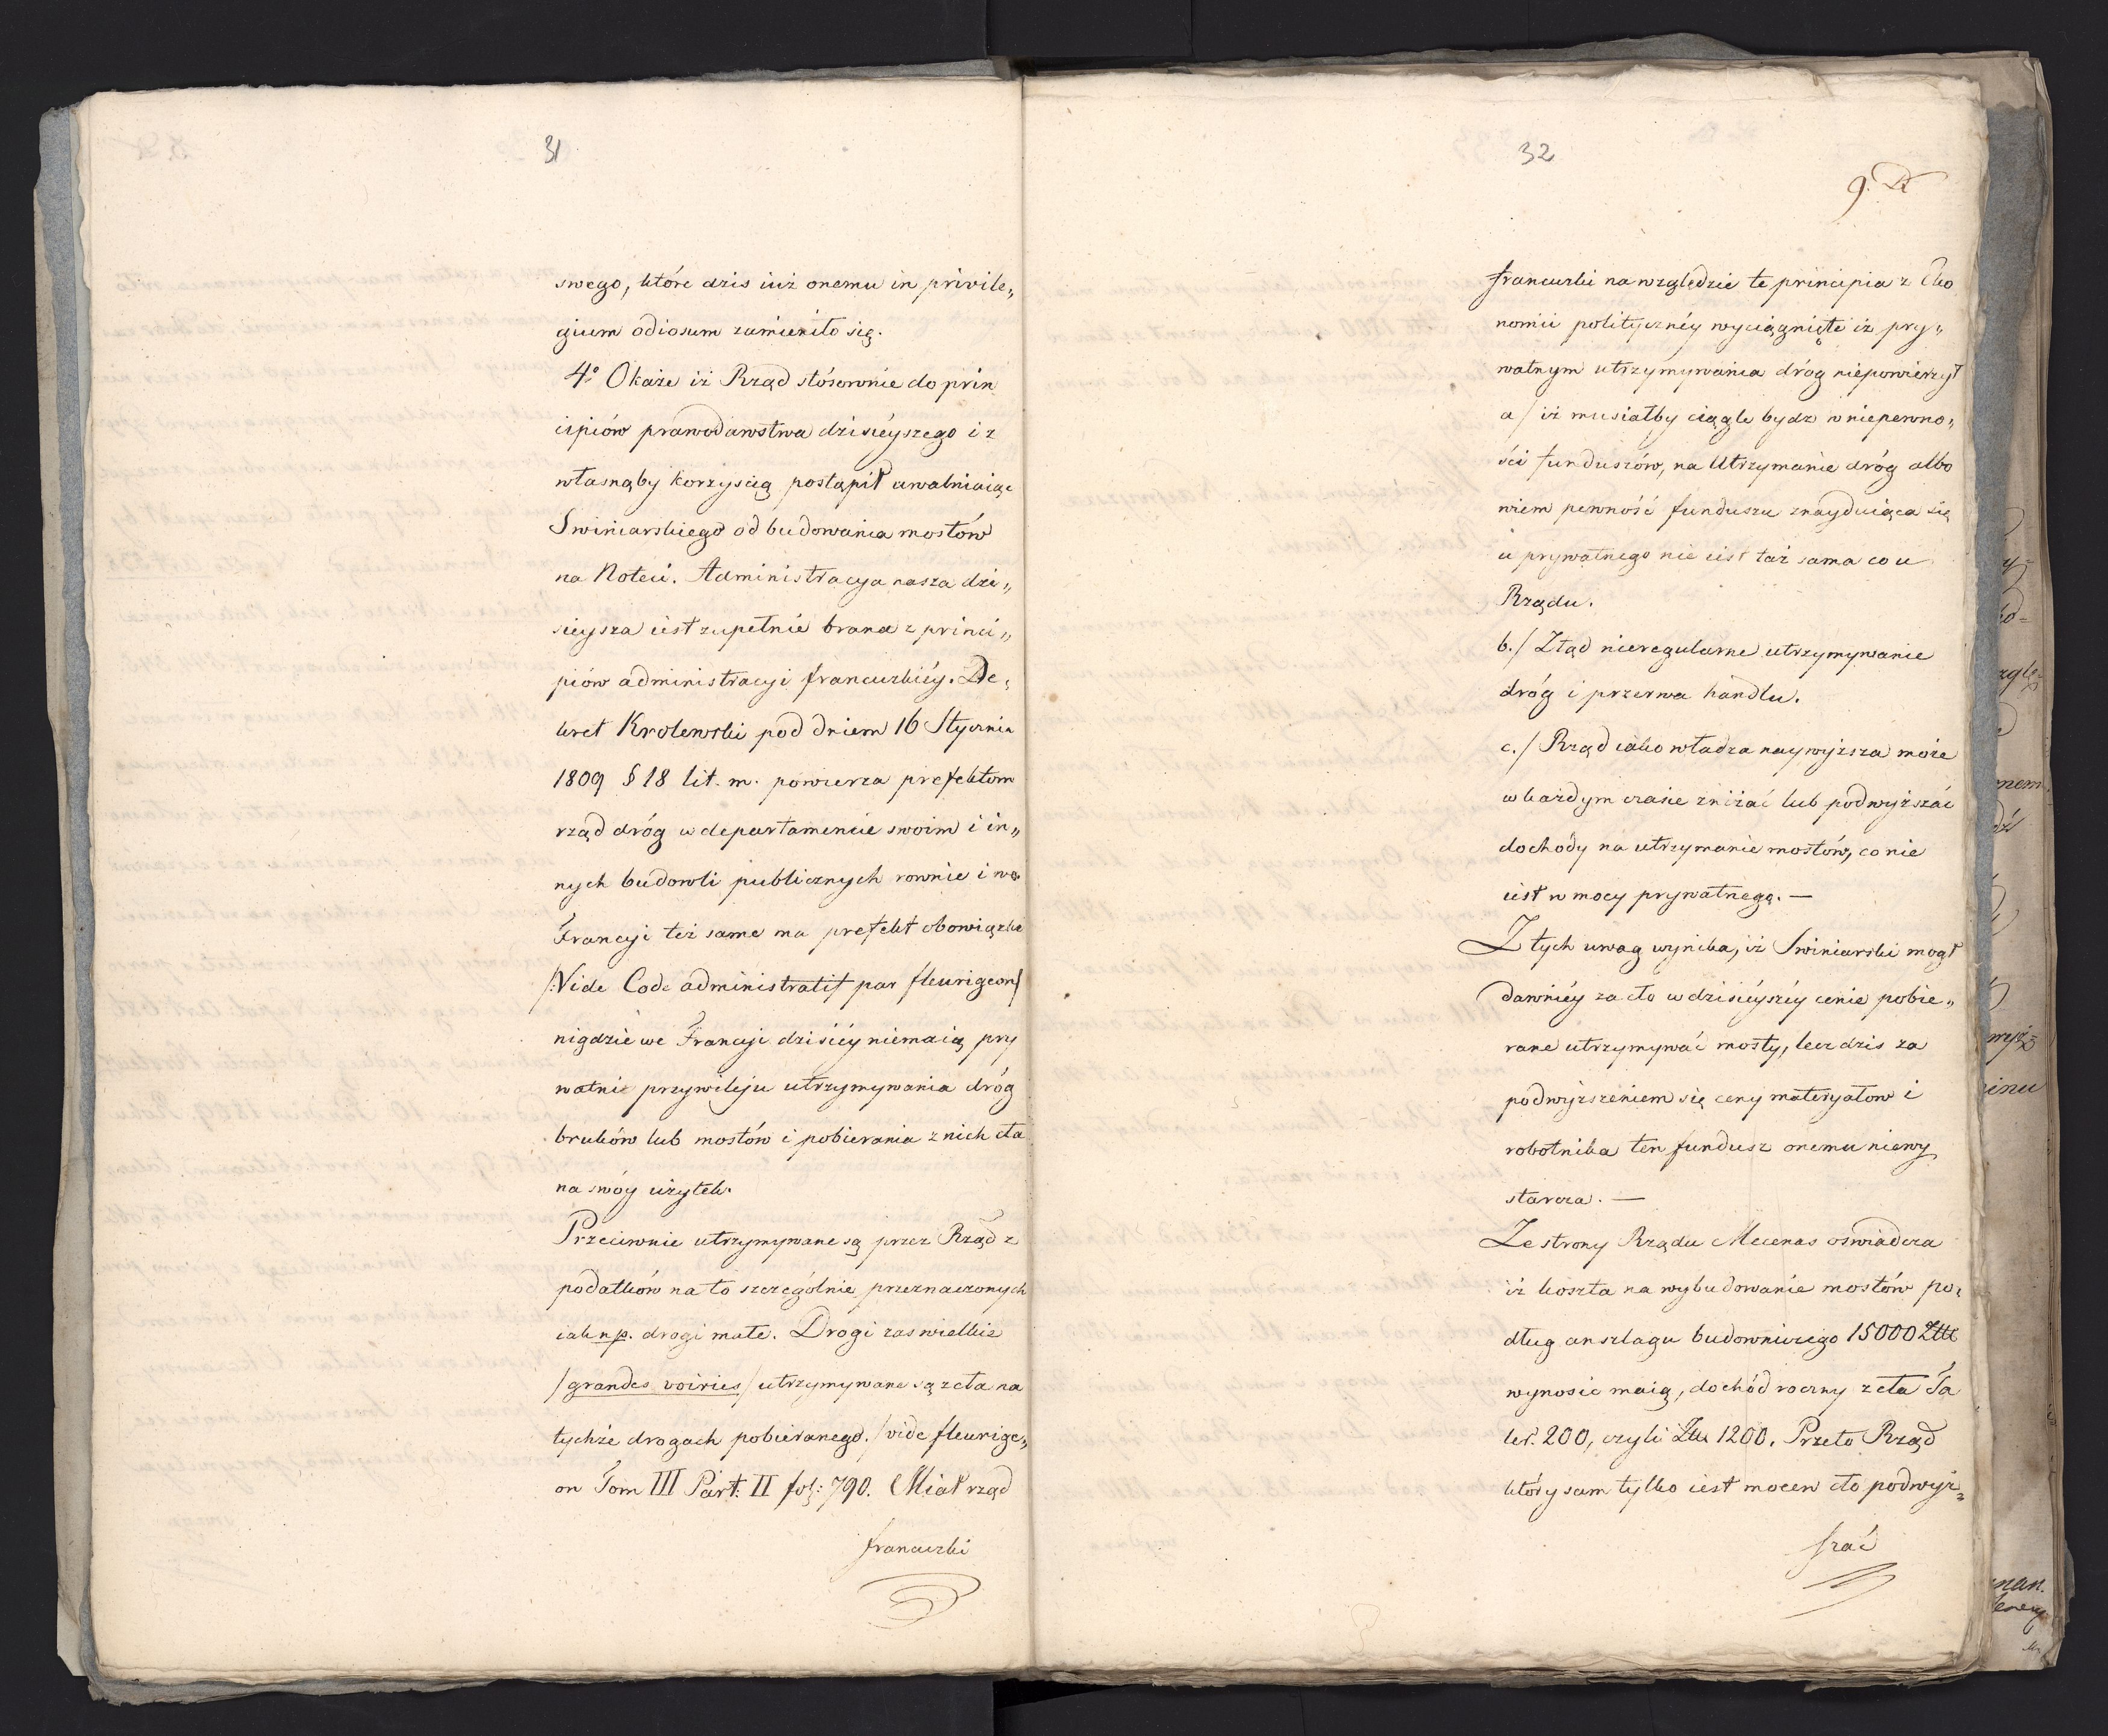 31
swego, które dzis iuż onemu in privile„
gium odiosum zamieniło się.
4º Okaże iż Rząd stósownie do prin
cipiów prawodawstwa dzisieyszego i z
własnąby korzyscią postąpił uwalniaiąc
Swiniarskiego od budowania mostów
na Noteci. Administracya nasza dzi„
sieysza iest zupełnie brana z princi„
piów administracyi francuzkiéy. De„
kret Krolewski pod dniem 16 Stycznia
1809 § 18 lit. m. powierza prefektom
rząd dróg w departamencie swoim i in„
nych budowli publicznych rownie i we
Francyi też same ma prefekt obowiązki
/:Vide Code administratif par fleurigeon/
nigdzie we Francyi dzisiéy niemaią pry
watni przywileju utrzymywania dróg
bruków lub mostów i pobierania z nich cła
na swóy użytek.
Przeciwnie utrzymywane są przez Rząd z
podatków na to szczególnie przeznaczonych
iak np. drogi małe. Drogi zas wielkie
/grandes voiries/ utrzymywane są z cła na
tychże drogach pobieranego. /vide fleurige„
on Tom III Part: II fol: 790. Miał rząd
francuzki
32
9.
francuzki na względzie te principia z Eko
nomii polityczney wyciągnięte iż pry„
watnym utrzymywania dróg niepowierzył
a/ iż musiałby ciągle bydz w niepewno„
ści funduszów, na Utrzymanie dróg albo
wiem pewność funduszu znayduiąca się
u prywatnego nie iest taż sama co u
Rządu.
b./ Ztąd nieregularne utrzymywanie
dróg i przerwa handlu.
c./ Rząd iako władza naywyższa może
w każdym czasie zniżać lub podwyższać
dochody na utrzymanie mostów, co nie
iest w mocy prywatnego. —
Z tych uwag wynika, iż Swiniarski mogł
dawniéy za cło w dzisiéyszéy cenie pobie„
rane utrzymywać mosty, lecz dzis za
podwyższeniem się ceny materyałow i
robotnika ten fundusz onemu niewy
starcza. —
Ze strony Rządu Mecenas oświadcza
iż koszta na wybudowanie mostów po„
dług anszlagu budowniczego 15000 Złł
wynosic maią, dochód roczny z cła Ta
ler. 200, czyli Złł 1200. Przeto Rząd
który sam tylko iest mocen cło podwyż„
szać